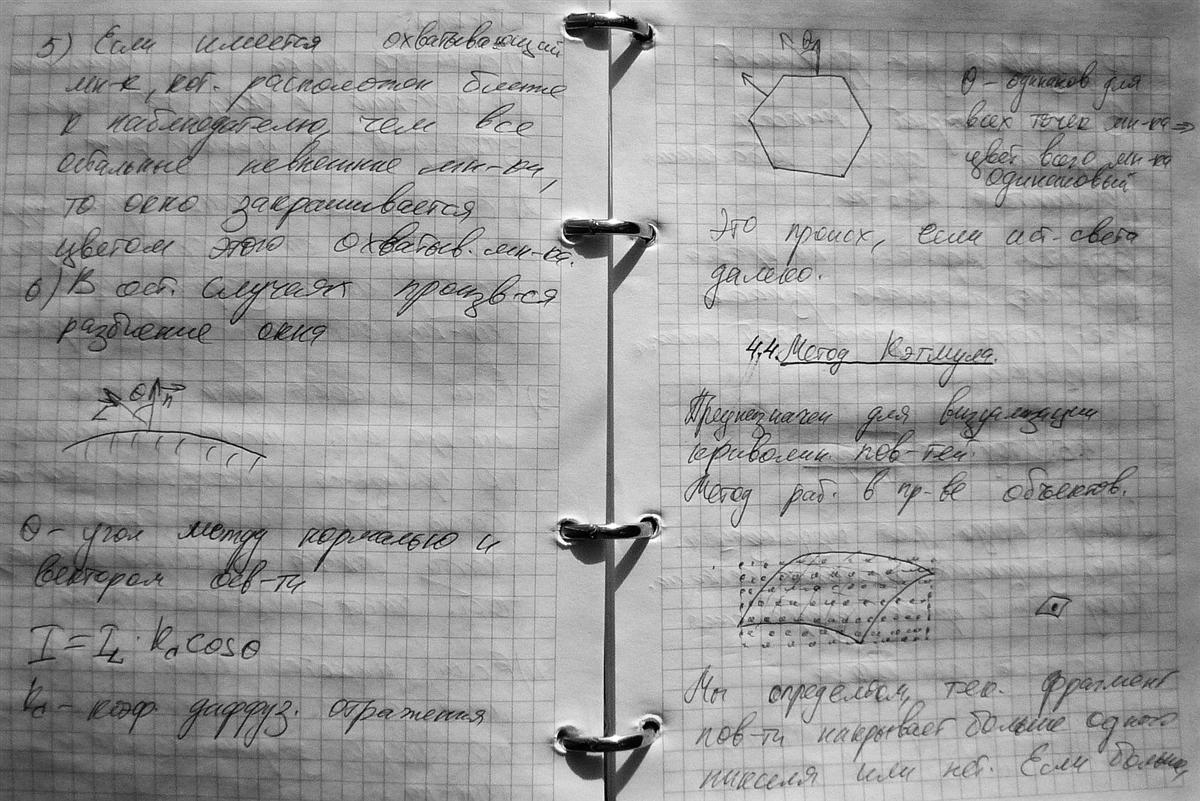 5) Если имеется охватывающий
мн-к, кот. расположен ближе
к наблюдателю, чем все
остальные невнешние мн-ки,
то окно закрашивается
цветом этого охватыв. мн-ка.
6) В ост. случаях произв-ся
разбиение окна
θ n
L
θ - угол между нормалью и
вектором осв-ти
I = I_L · k_d cosθ
k_d - коэф. диффуз. отражения
θ
θ - одинаков для
всех точек мн-ка ⇒
цвет всего мн-ка
одинаковый
Это происх, если ист. света
далеко.
4.4. Метод Кэтмула.
Предназначен для визуализации
криволин. пов-тей.
Метод раб. в пр-ве объектов.
Мы определяем, тек. фрагмент
пов-ти накрывает больше одного
пикселя или нет. Если больше,